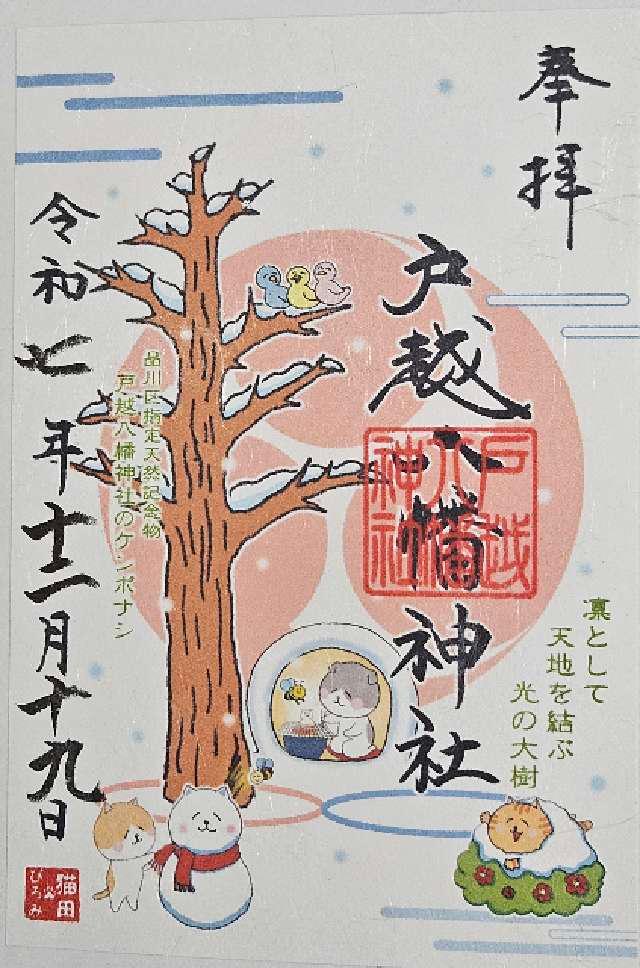 奉拝
戸越八幡神社
戸越
八幡
神社
凛として
天地を結ぶ
光の大樹
品川区指定天然記念物
戸越八幡神社のケンポナシ
令和七年十二月十九日
猫田
ひろみ